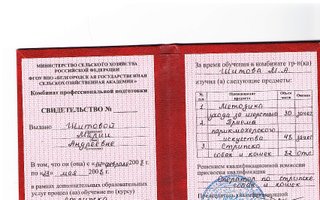 МИНИСТЕРСТВО СЕЛЬСКОГО ХОЗЯЙСТВА
РОССИЙСКОЙ ФЕДЕРАЦИИ
ФГОУ ВПО «БЕЛГОРОДСКАЯ ГОСУДАРСТВЕННАЯ
СЕЛЬСКОХОЗЯЙСТВЕННАЯ АКАДЕМИЯ»
Комбинат профессиональной подготовки
СВИДЕТЕЛЬСТВО №
Выдано Шитовой
Марии
Андреевне
В том, что он (она) с « » февраля 2008 г.
по « » мая 2008 г.
в рамках дополнительных образовательных
услуг прошел (ла) обучение по (курсу)
За время обучения в комбинате
Шитова М.А.
изучил (а) следующие предметы:
№ п.п Наименование предмета Объем часов
1 Методика ухода за шерстью 30 зачет
2 Приёмы парикмахерского искусства 48 зачет
3 Стрижка собак и кошек 82
Решением квалификационной комиссии
присвоена квалификация
Оператор по стрижке
собак и кошек